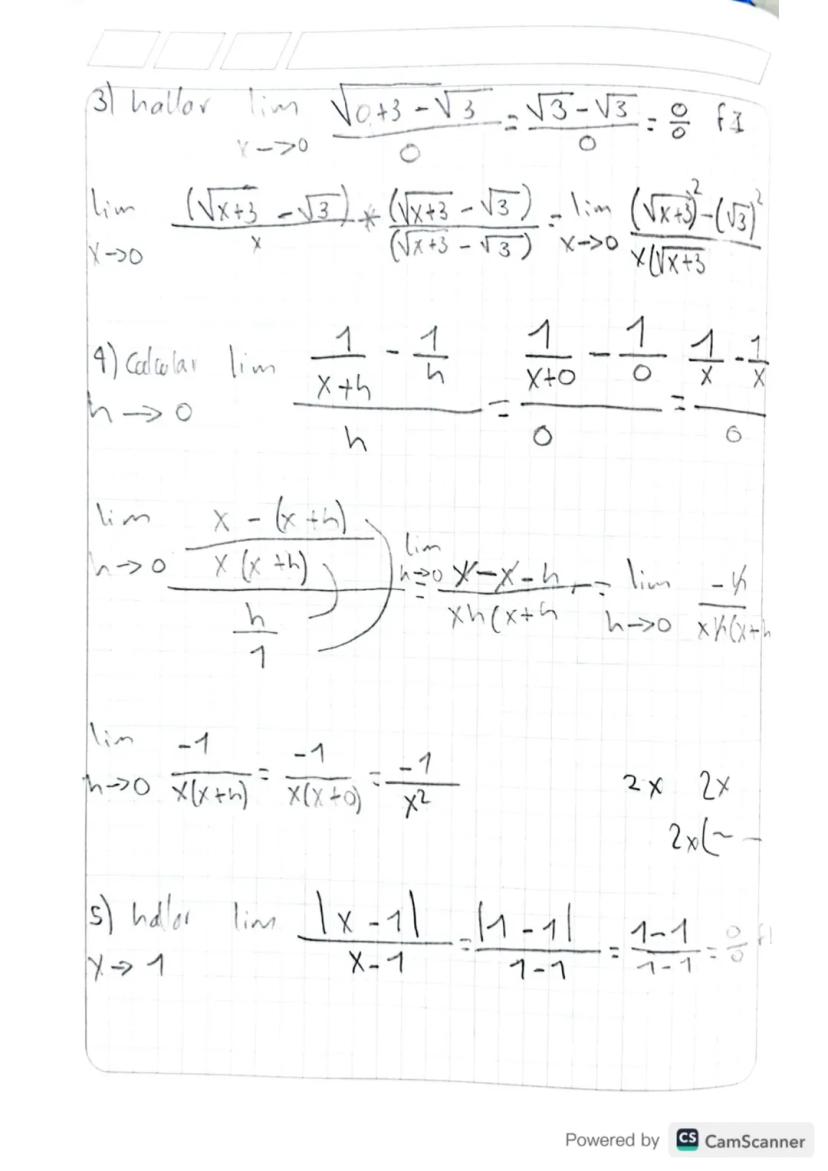 3) hallar lim √0+3 - √3 / 0 = √3 - √3 / 0 = 0/0 fI
x->0
lim (√x+3 - √3) / x * (√x+3 - √3) / (√x+3 - √3) = lim (√x+3)² - (√3)² / x(√x+3
x->0 x->0
4) Calcular lim 1/x+h - 1/h / h = 1/x+0 - 1/0 / 0 = 1/x - 1/x / 0
h -> 0
lim x - (x+h) / x(x+h) / h/1 = lim x-x-h / xh(x+h = lim -h / xh(x+h
h->0 h->0 h->0
lim -1 / x(x+h) = -1 / x(x+0) = -1 / x²
h->0
2x 2x
2x(
5) hallar lim |x-1| / x-1 = |1-1| / 1-1 = 1-1 / 1-1 = 0/0 fI
x->1
Powered by CS CamScanner